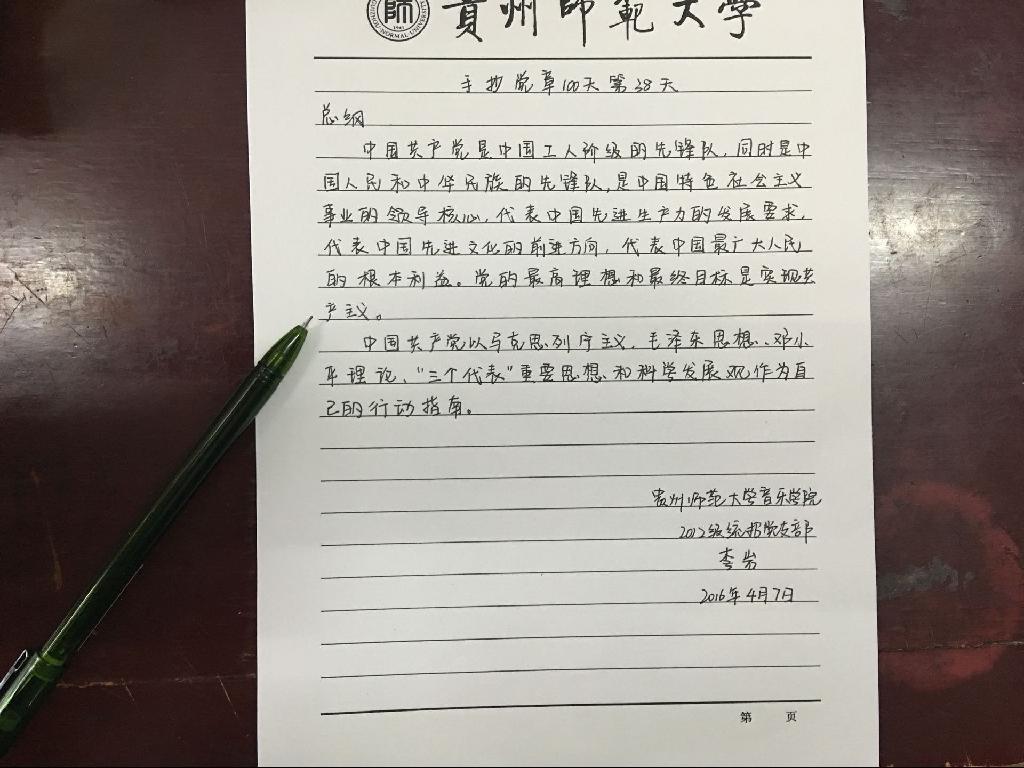 貴州師範大學
GUIZHOU NORMAL UNIVERSITY
師
1941
手抄党章100天第38天
总纲
中国共产党是中国工人阶级的先锋队，同时是中
国人民和中华民族的先锋队，是中国特色社会主义
事业的领导核心，代表中国先进生产力的发展要求，
代表中国先进文化的前进方向，代表中国最广大人民
的根本利益。党的最高理想和最终目标是实现共
产主义。
中国共产党以马克思列宁主义、毛泽东思想、邓小
平理论、“三个代表”重要思想和科学发展观作为自
己的行动指南。
贵州师范大学音乐学院
2012级统招党支部
李岩
2016年4月7日
第 页